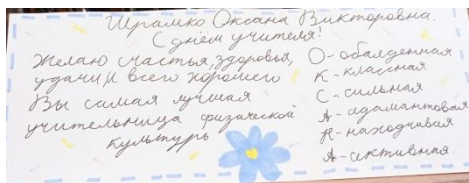 Шрамко Оксана Викторовна.
С днём учителя!
Желаю счастья, здоровья,
удачи, и всего хорошего
Вы самая лучшая
учительница физической
культуры
О - обалденная
К - классная
С - сильная
А - адамантовая
Н - находчивая
А - активная